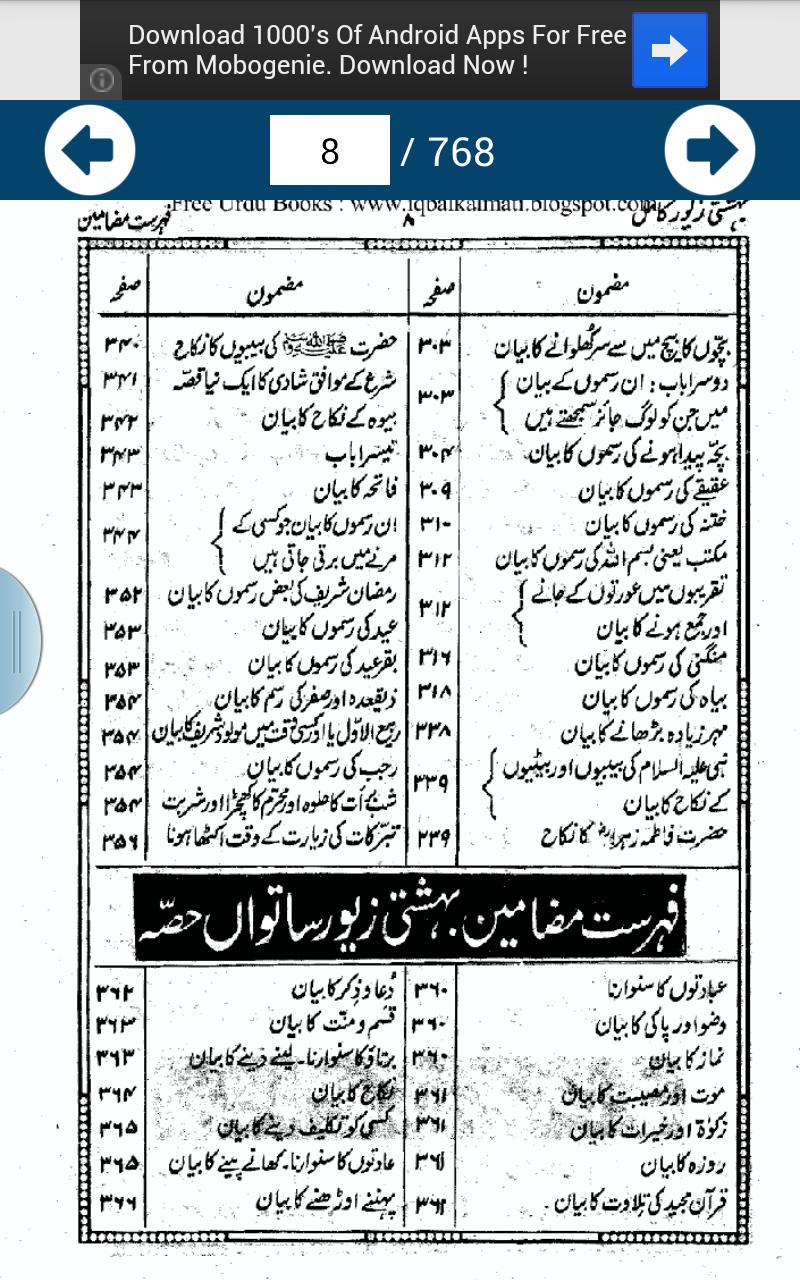 Download 1000's Of Android Apps For Free
From Mobogenie. Download Now !
8 / 768
Free Urdu Books : www.iqbalkalmati.blogspot.com
بہشتی زیور کامل
۸
فہرست مضامین
مضمون صفحہ
بچّوں کا بیچ میں سے سر کُھلوانے کا بیان ۳۰۳
دوسرا باب : ان رسموں کے بیان
میں جن کو لوگ جائز سمجھتے ہیں ۳۰۳
بچّہ پیدا ہونے کی رسموں کا بیان ۳۰۴
عقیقے کی رسموں کا بیان ۳۰۹
ختنہ کی رسموں کا بیان ۳۱۰
مکتب یعنی بسم اللہ کی رسموں کا بیان ۳۱۲
تقریبوں میں عورتوں کے جانے
اور جمع ہونے کا بیان ۳۱۲
منگنی کی رسموں کا بیان ۳۱۶
بیاہ کی رسموں کا بیان ۳۱۸
مہر زیادہ بڑھانے کا بیان ۳۳۸
نبی علیہ السلام کی بیبیوں اور بیٹیوں
کے نکاح کا بیان ۳۳۹
حضرت فاطمہ زہرا کا نکاح ۲۳۹
مضمون صفحہ
حضرت صلی اللہ علیہ وسلم کی بیبیوں کا نکاح ۳۴۰
شرع کے موافق شادی کا ایک نیا قصّہ ۳۴۱
بیوہ کے نکاح کا بیان ۳۴۲
تیسرا باب ۳۴۳
فاتحہ کا بیان ۳۴۳
ان رسموں کا بیان جو کسی کے
مرنے میں برتی جاتی ہیں ۳۴۴
رمضان شریف کی بعض رسموں کا بیان ۳۵۲
عید کی رسموں کا بیان ۳۵۳
بقر عید کی رسموں کا بیان ۳۵۳
ذیقعدہ اور صفر کی رسم کا بیان ۳۵۴
ربیع الاوّل یا اور کسی وقت میں مولود شریف کا بیان ۳۵۴
رجب کی رسموں کا بیان ۳۵۴
شب برأت کا حلوہ اور محرّم کا کھچڑا اور شربت ۳۵۴
تبرّکات کی زیارت کے وقت اکٹھا ہونا ۳۵۶
فہرست مضامین بہشتی زیور ساتواں حصّہ
عبادتوں کا سنوارنا ۳۶۰
وضو اور پاکی کا بیان ۳۶۰
نماز کا بیان ۳۶۰
موت اور مصیبت کا بیان ۳۶۱
زکوٰۃ اور خیرات کا بیان ۳۶۱
روزہ کا بیان ۳۶۱
قرآن مجید کی تلاوت کا بیان ۳۶۲
دُعا و ذِکر کا بیان ۳۶۲
قسم و منّت کا بیان ۳۶۳
برتاؤ کا سنوارنا۔ لینے دینے کا بیان ۳۶۳
نکاح کا بیان ۳۶۴
کسی کو تکلیف دینے کا بیان ۳۶۵
عادتوں کا سنوارنا۔ کھانے پینے کا بیان ۳۶۵
پہننے اوڑھنے کا بیان ۳۶۶